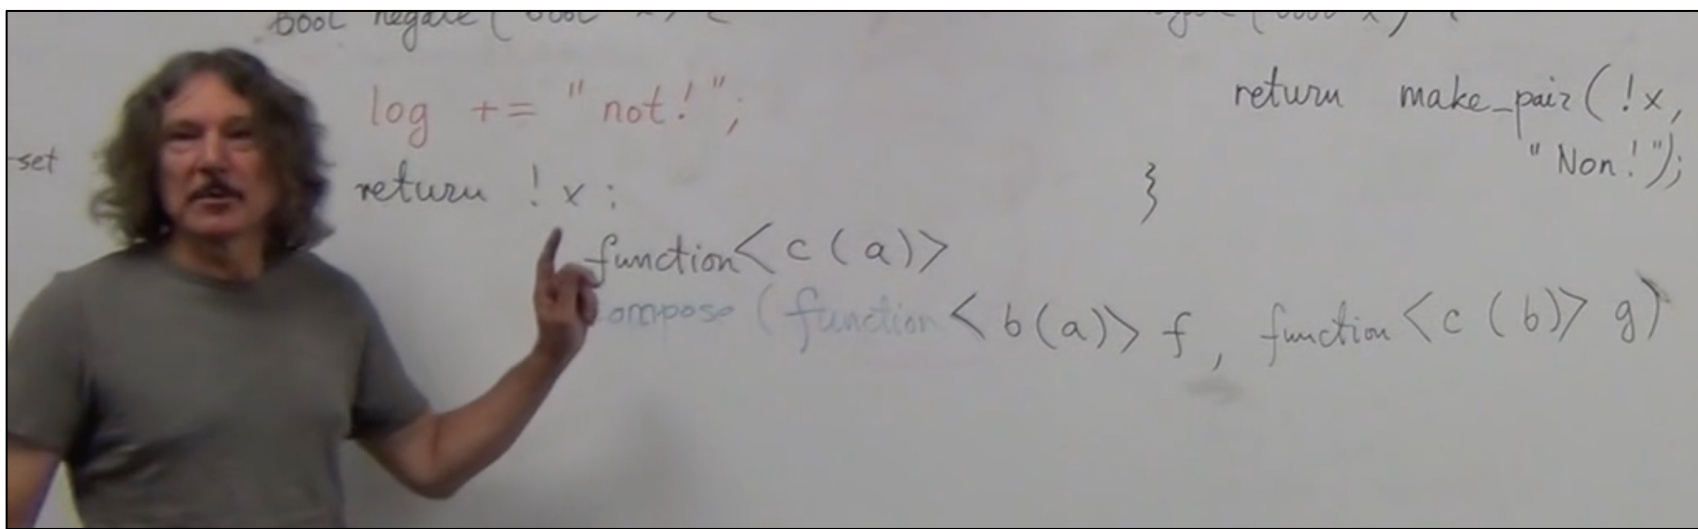 bool negate (bool x) {
log += "not!";
return !x;
function<c(a)>
compose (function<b(a)> f, function<c(b)> g)
-set
return make_pair(!x,
"Non!");
}